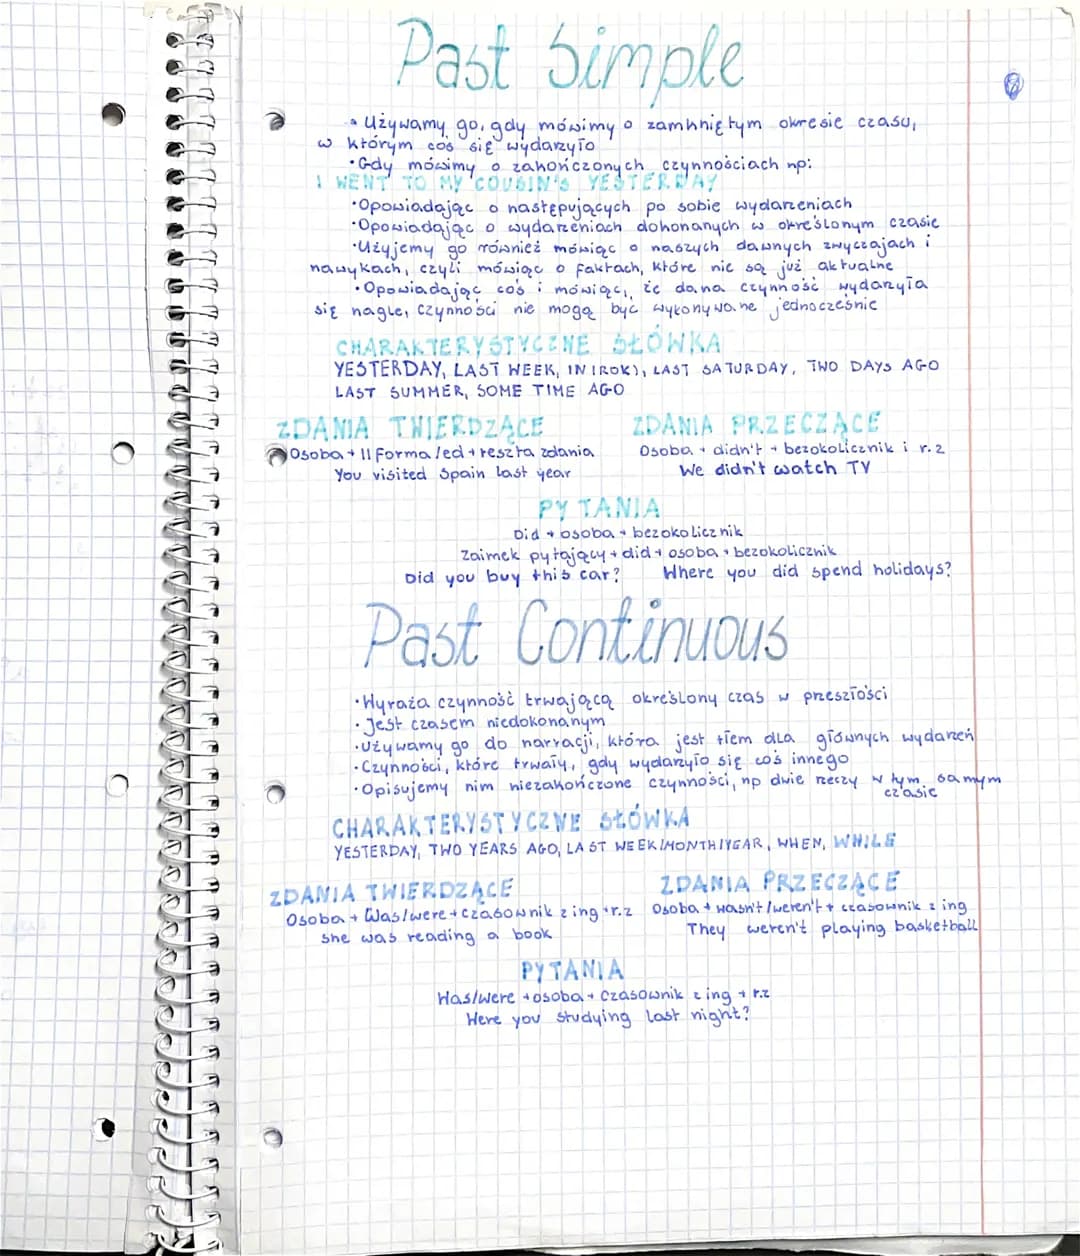 Past Simple
• Używamy go, gdy mówimy o zamkniętym okresie czasu,
w którym coś się wydarzyło
• Gdy mówimy o zakończonych czynnościach np:
I WENT TO MY COUSIN'S YESTERDAY
• Opowiadając o następujących po sobie wydarzeniach
• Opowiadając o wydarzeniach dokonanych w określonym czasie
• Użyjemy go również mówiąc o naszych dawnych zwyczajach i
nawykach, czyli mówiąc o faktach, które nie są już aktualne
• Opowiadając coś i mówiąc, że dana czynność wydarzyła
się nagle, czynności nie mogą być wykonywane jednocześnie
CHARAKTERYSTYCZNE SŁÓWKA
YESTERDAY, LAST WEEK, IN (ROK), LAST SATURDAY, TWO DAYS AGO
LAST SUMMER, SOME TIME AGO
ZDANIA TWIERDZĄCE ZDANIA PRZECZĄCE
Osoba + II forma /ed + reszta zdania Osoba + didn't + bezokolicznik i r.z
You visited Spain last year We didn't watch TV
PYTANIA
Did + osoba + bezokolicznik
Zaimek pytający + did + osoba + bezokolicznik
Did you buy this car? Where you did spend holidays?
Past Continuous
• Wyraża czynność trwającą określony czas w przeszłości
• Jest czasem niedokonanym
• Używamy go do narracji, która jest tłem dla głównych wydarzeń
• Czynności, które trwały, gdy wydarzyło się coś innego
• Opisujemy nim niezakończone czynności, np dwie rzeczy w tym samym
czasie
CHARAKTERYSTYCZNE SŁÓWKA
YESTERDAY, TWO YEARS AGO, LAST WEEK/MONTH/YEAR, WHEN, WHILE
ZDANIA TWIERDZĄCE ZDANIA PRZECZĄCE
Osoba + Was/were + czasownik z ing + r.z Osoba + wasn't/weren't + czasownik z ing
She was reading a book They weren't playing basketball
PYTANIA
Was/were + osoba + czasownik z ing + r.z
Were you studying last night?